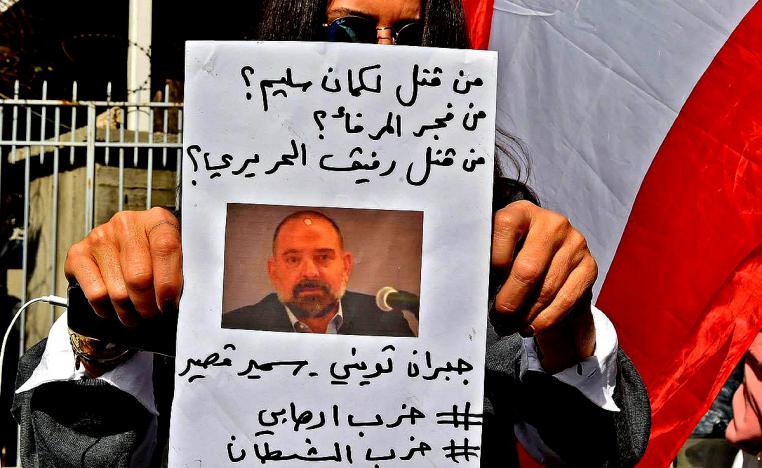 من قتل لكمان سليم؟
من فجر المرفاء؟
من قتل رفيق الحريري؟
جبران تويني - سمير قصير
# حزب ارهابي
# حزب الشيطان